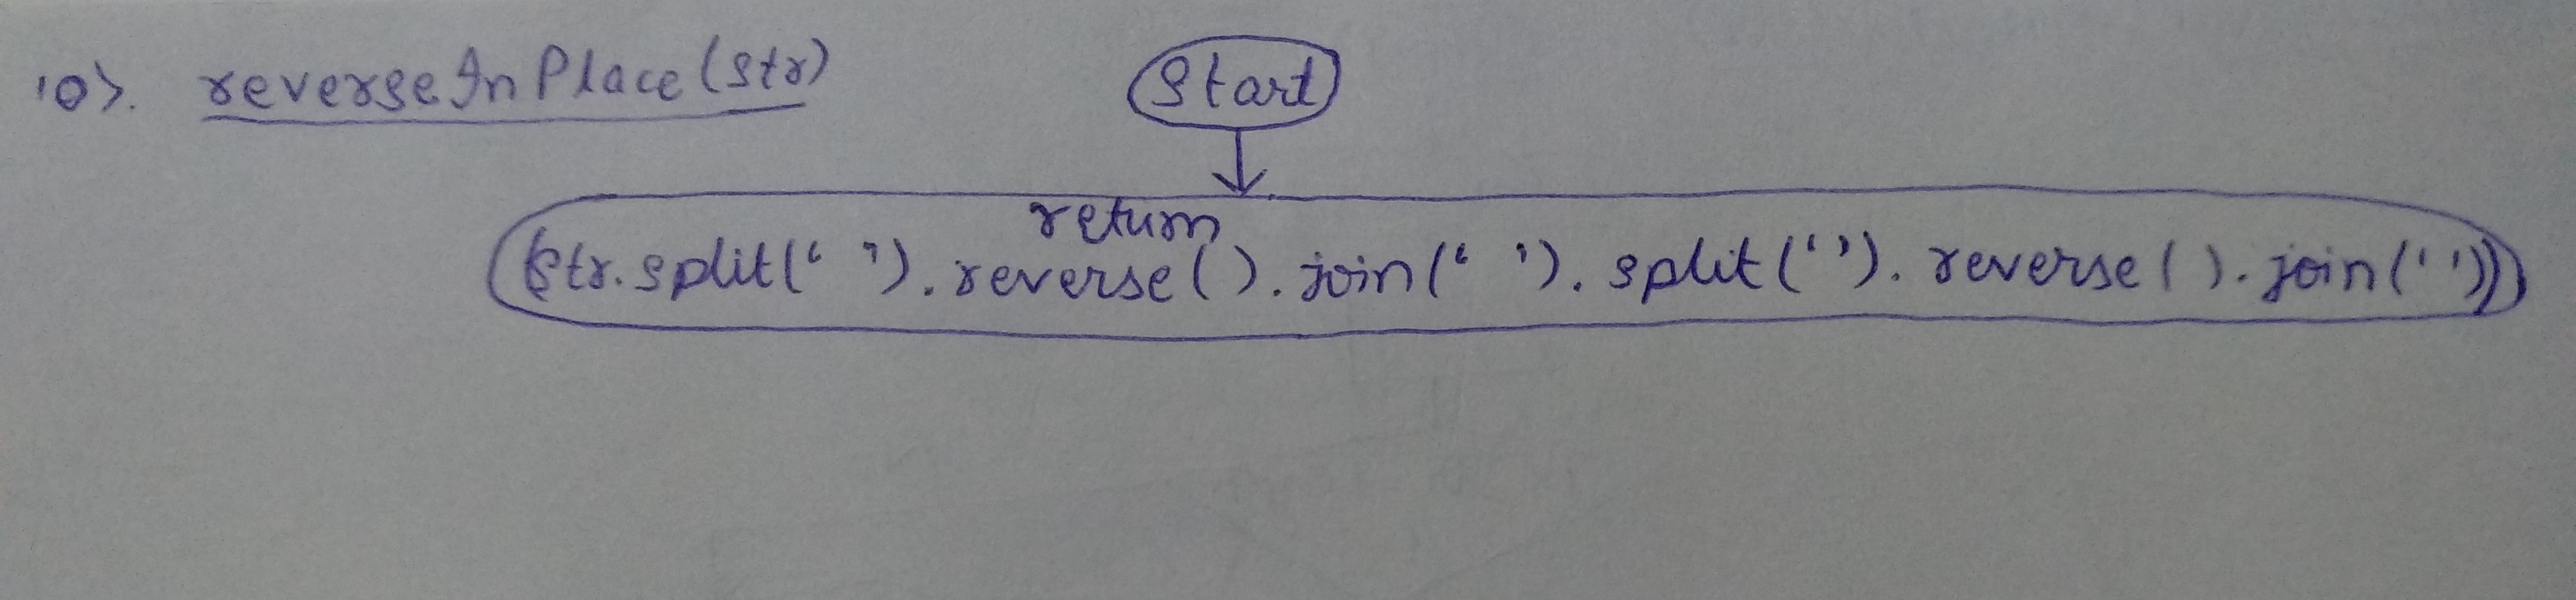 10). reverseInPlace(str)
Start
return
(str.split(' ').reverse().join(' ').split('').reverse().join(''))